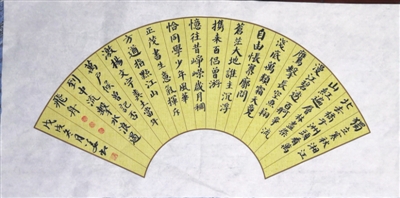 獨立寒秋湘江
北去橘子洲頭看萬
山紅遍層林盡染
漫江碧透百舸爭流
鷹擊長空魚翔
淺底萬類霜天競
自由悵寥廓問
蒼茫大地誰主沉浮
携来百侣曾游
憶往昔崢嶸歲月稠
恰同學少年風華
正茂書生意氣揮斥
方遒指點江山
激揚文字糞土當年
萬户侯曾記否
到中流擊水浪遏
飛舟
戊戌冬月